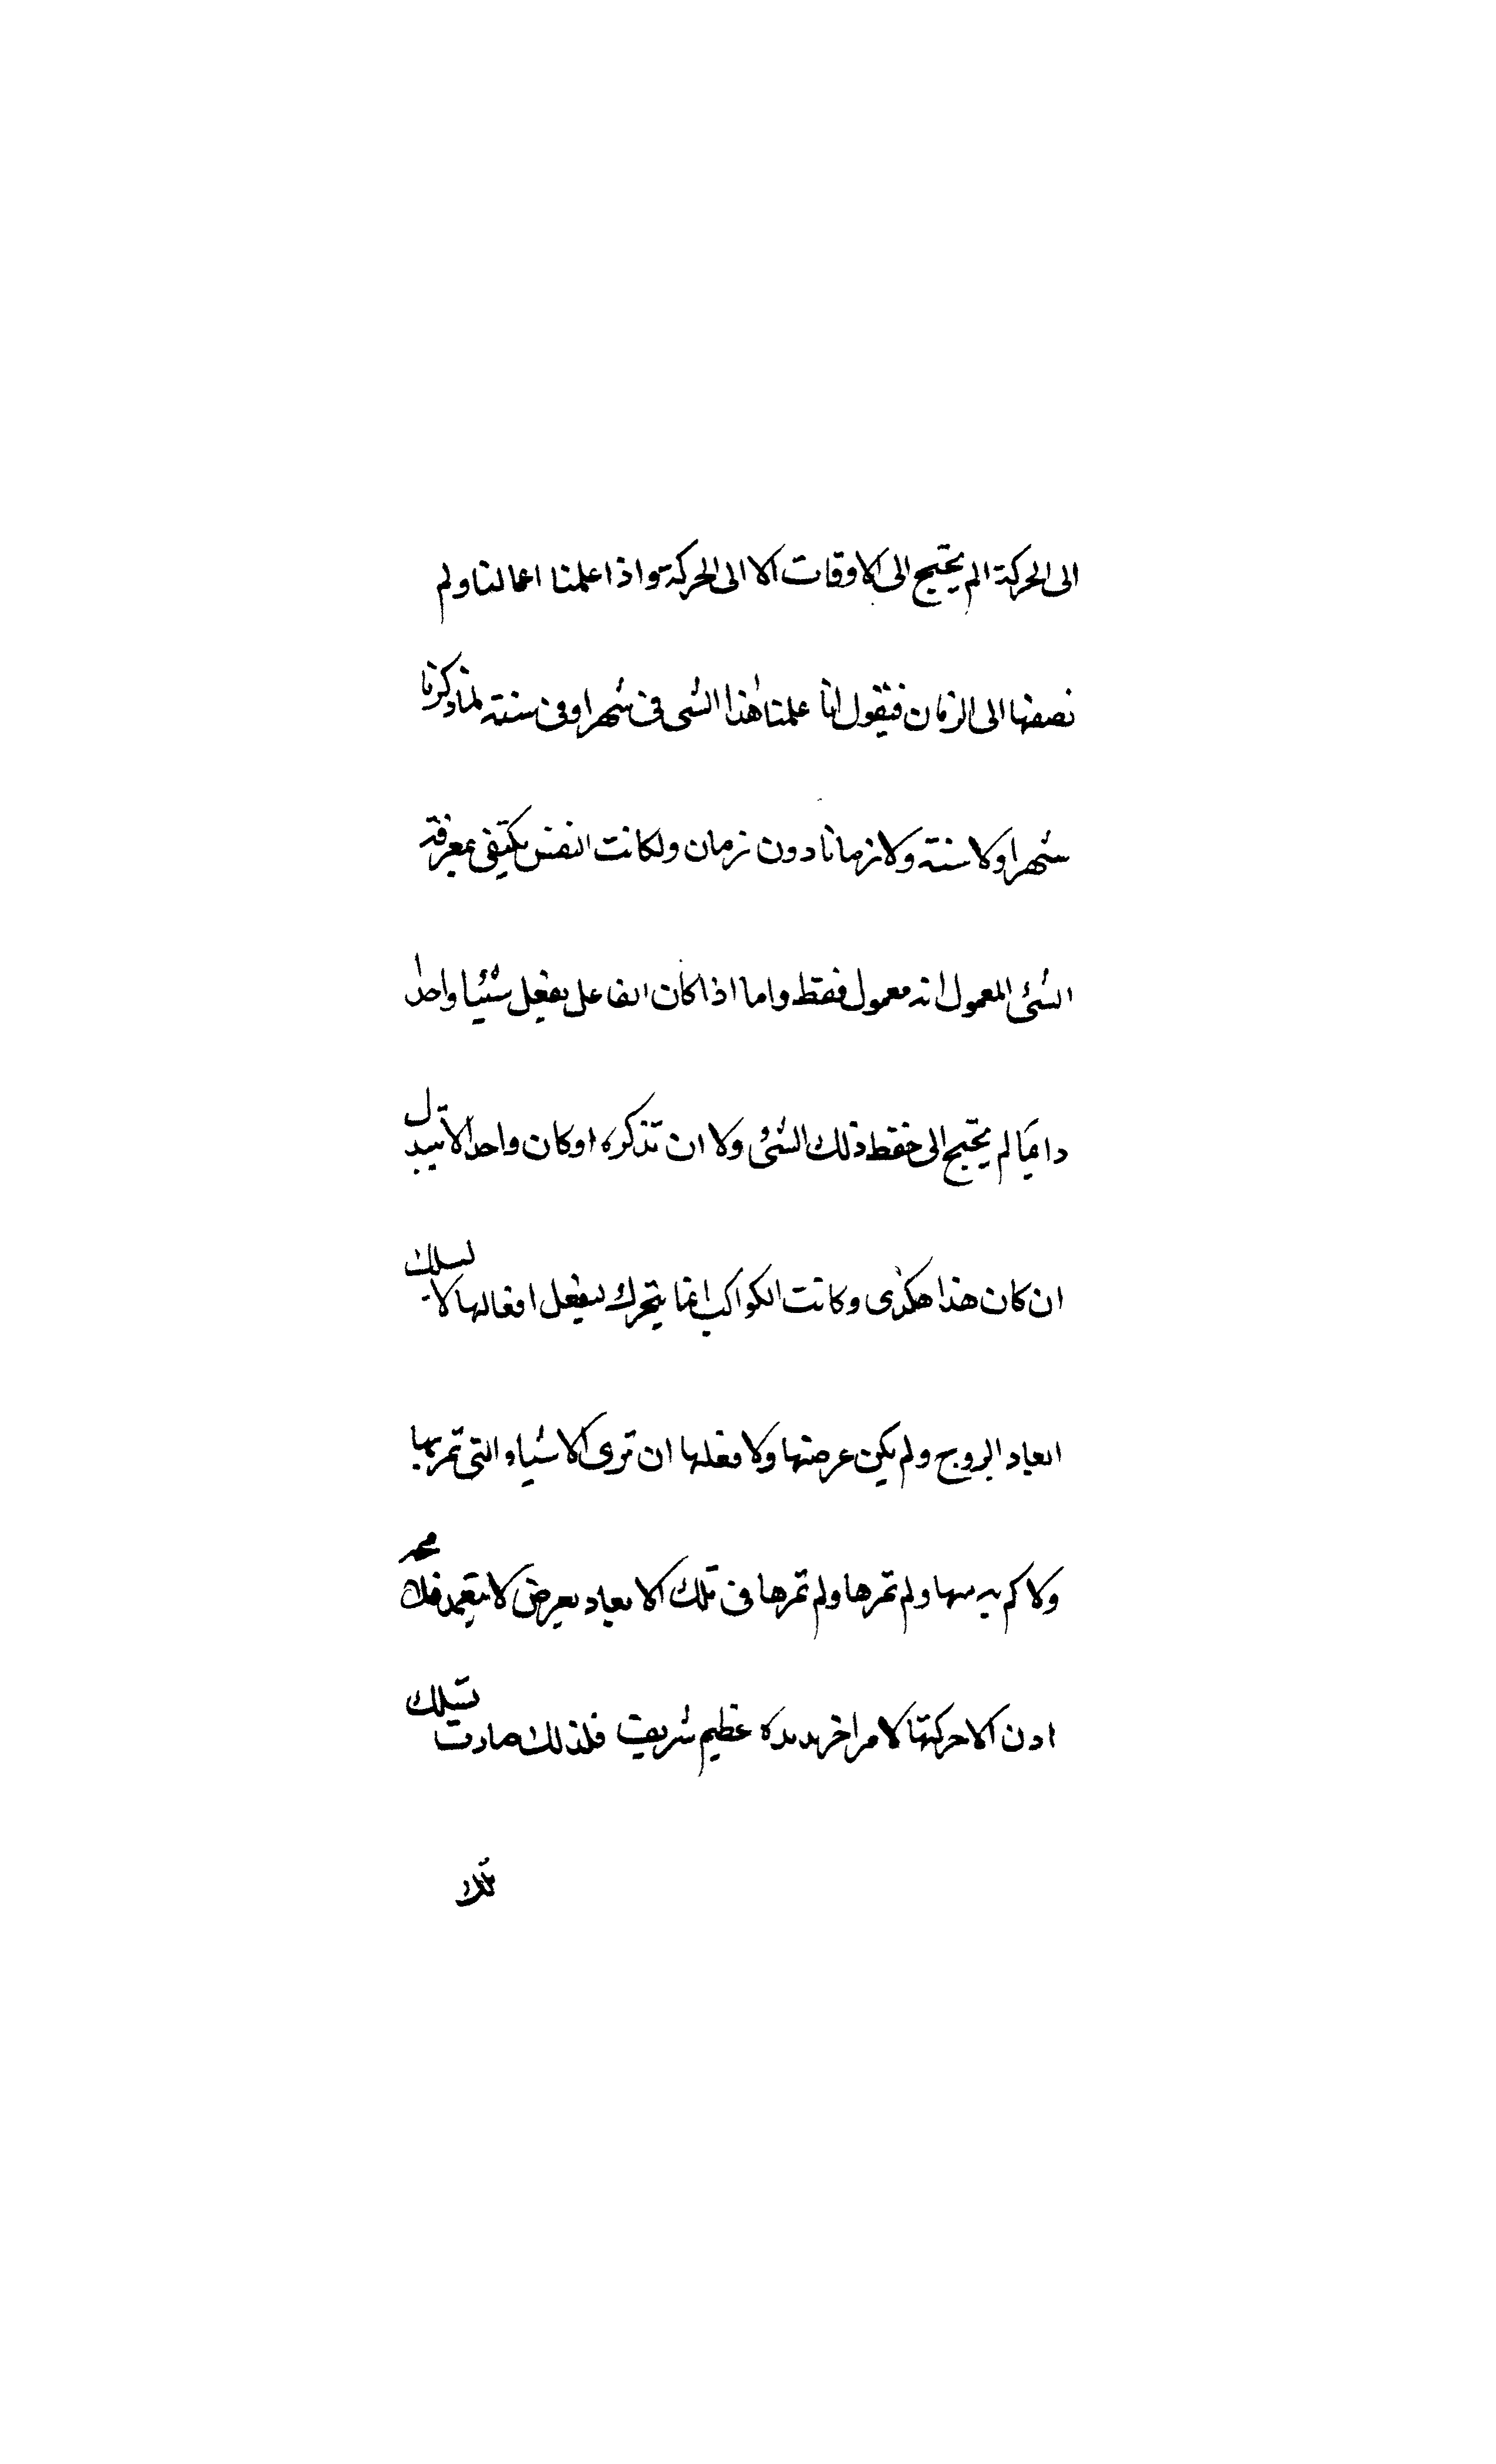 الى الحركة الم يحتج الى الاوقات الا الى الحركة واذا علمنا اعمالنا ولم
نصفها الى الزمان فنقول انا علمنا هذا الشى فى شهر او فى سنة لما ذكرنا
شهرا ولا سنة ولا زمانا دون زمان ولكانت النفس يكتفى بمعرفة
الشئ المعمول انه معمول فقط واما اذا كان الفاعل يفعل شيئا واحدا
دايما لم يحتج الى حفظ ذلك الشئ ولا ان تذكره او كان واحدا لا تتبدل
ان كان هذا هكذى وكانت الكواكب انما يتحرك ليفعل افعالها لا لتسلك
ابعاد البروج ولم يكن عرضها ولا فعلها ان ترى الاشياء التى تمر بها
ولا كم ولم تمرها ولم تمرها فى تلك الابعاد بعرض لا بتعمد
اذن الا حركتها لامر اخر يريده عظيم شريف فلذلك صارت تسلك
تلك